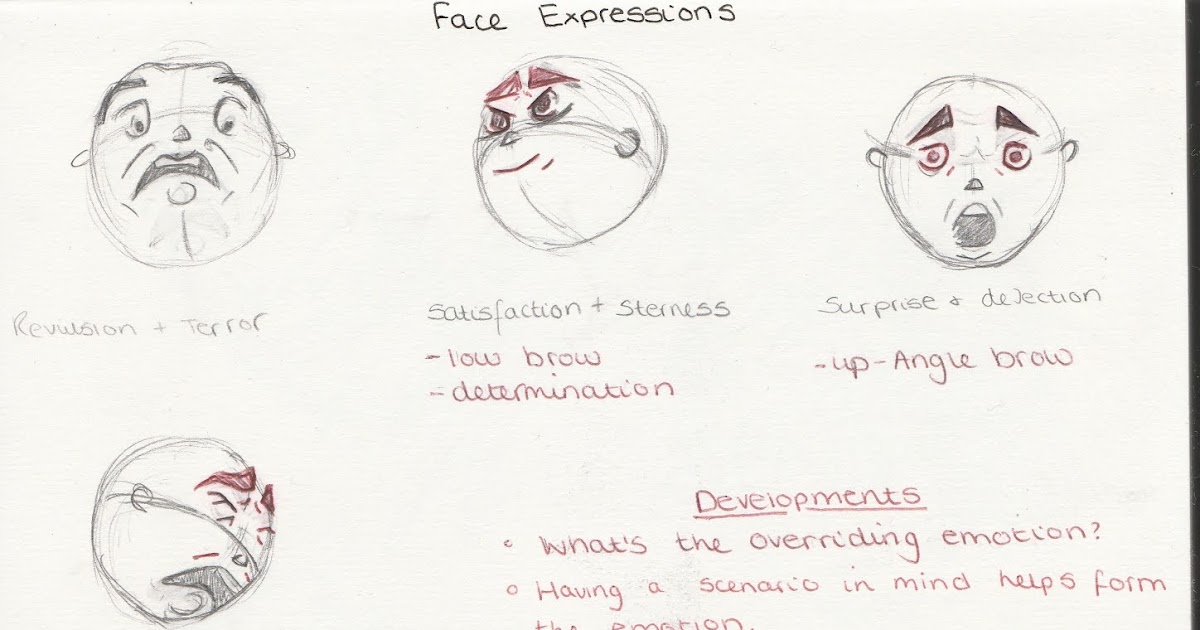 Face Expressions
Revulsion + Terror
Satisfaction + Sterness
- low brow
- determination
Surprise & dejection
- up-Angle brow
Developments
• What's the overriding emotion?
• Having a scenario in mind helps form
the emotion.